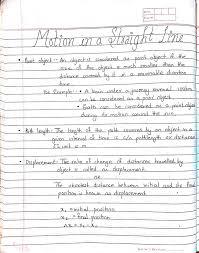 Motion in a Straight Line
• Point object:- An object is considered as point object if the
size of the object is much smaller than the
distance covered by it in a reasonable duration
time.
for Example:- • A train under a journey several 100km
can be considered as a point object.
• Earth can be considered as a point object
during its motion around the sun.
• Path length: The length of the path covered by an object in a
given interval of time is c/a pathlength or distance
SI unit is m.
• Displacement: The rate of change of distance travelled by
object is called as displacement.
or
The shortest distance between initial and the final
position is known as displacement.
x₁ = initial position
x₂ = final position
Δx = x₂ - x₁